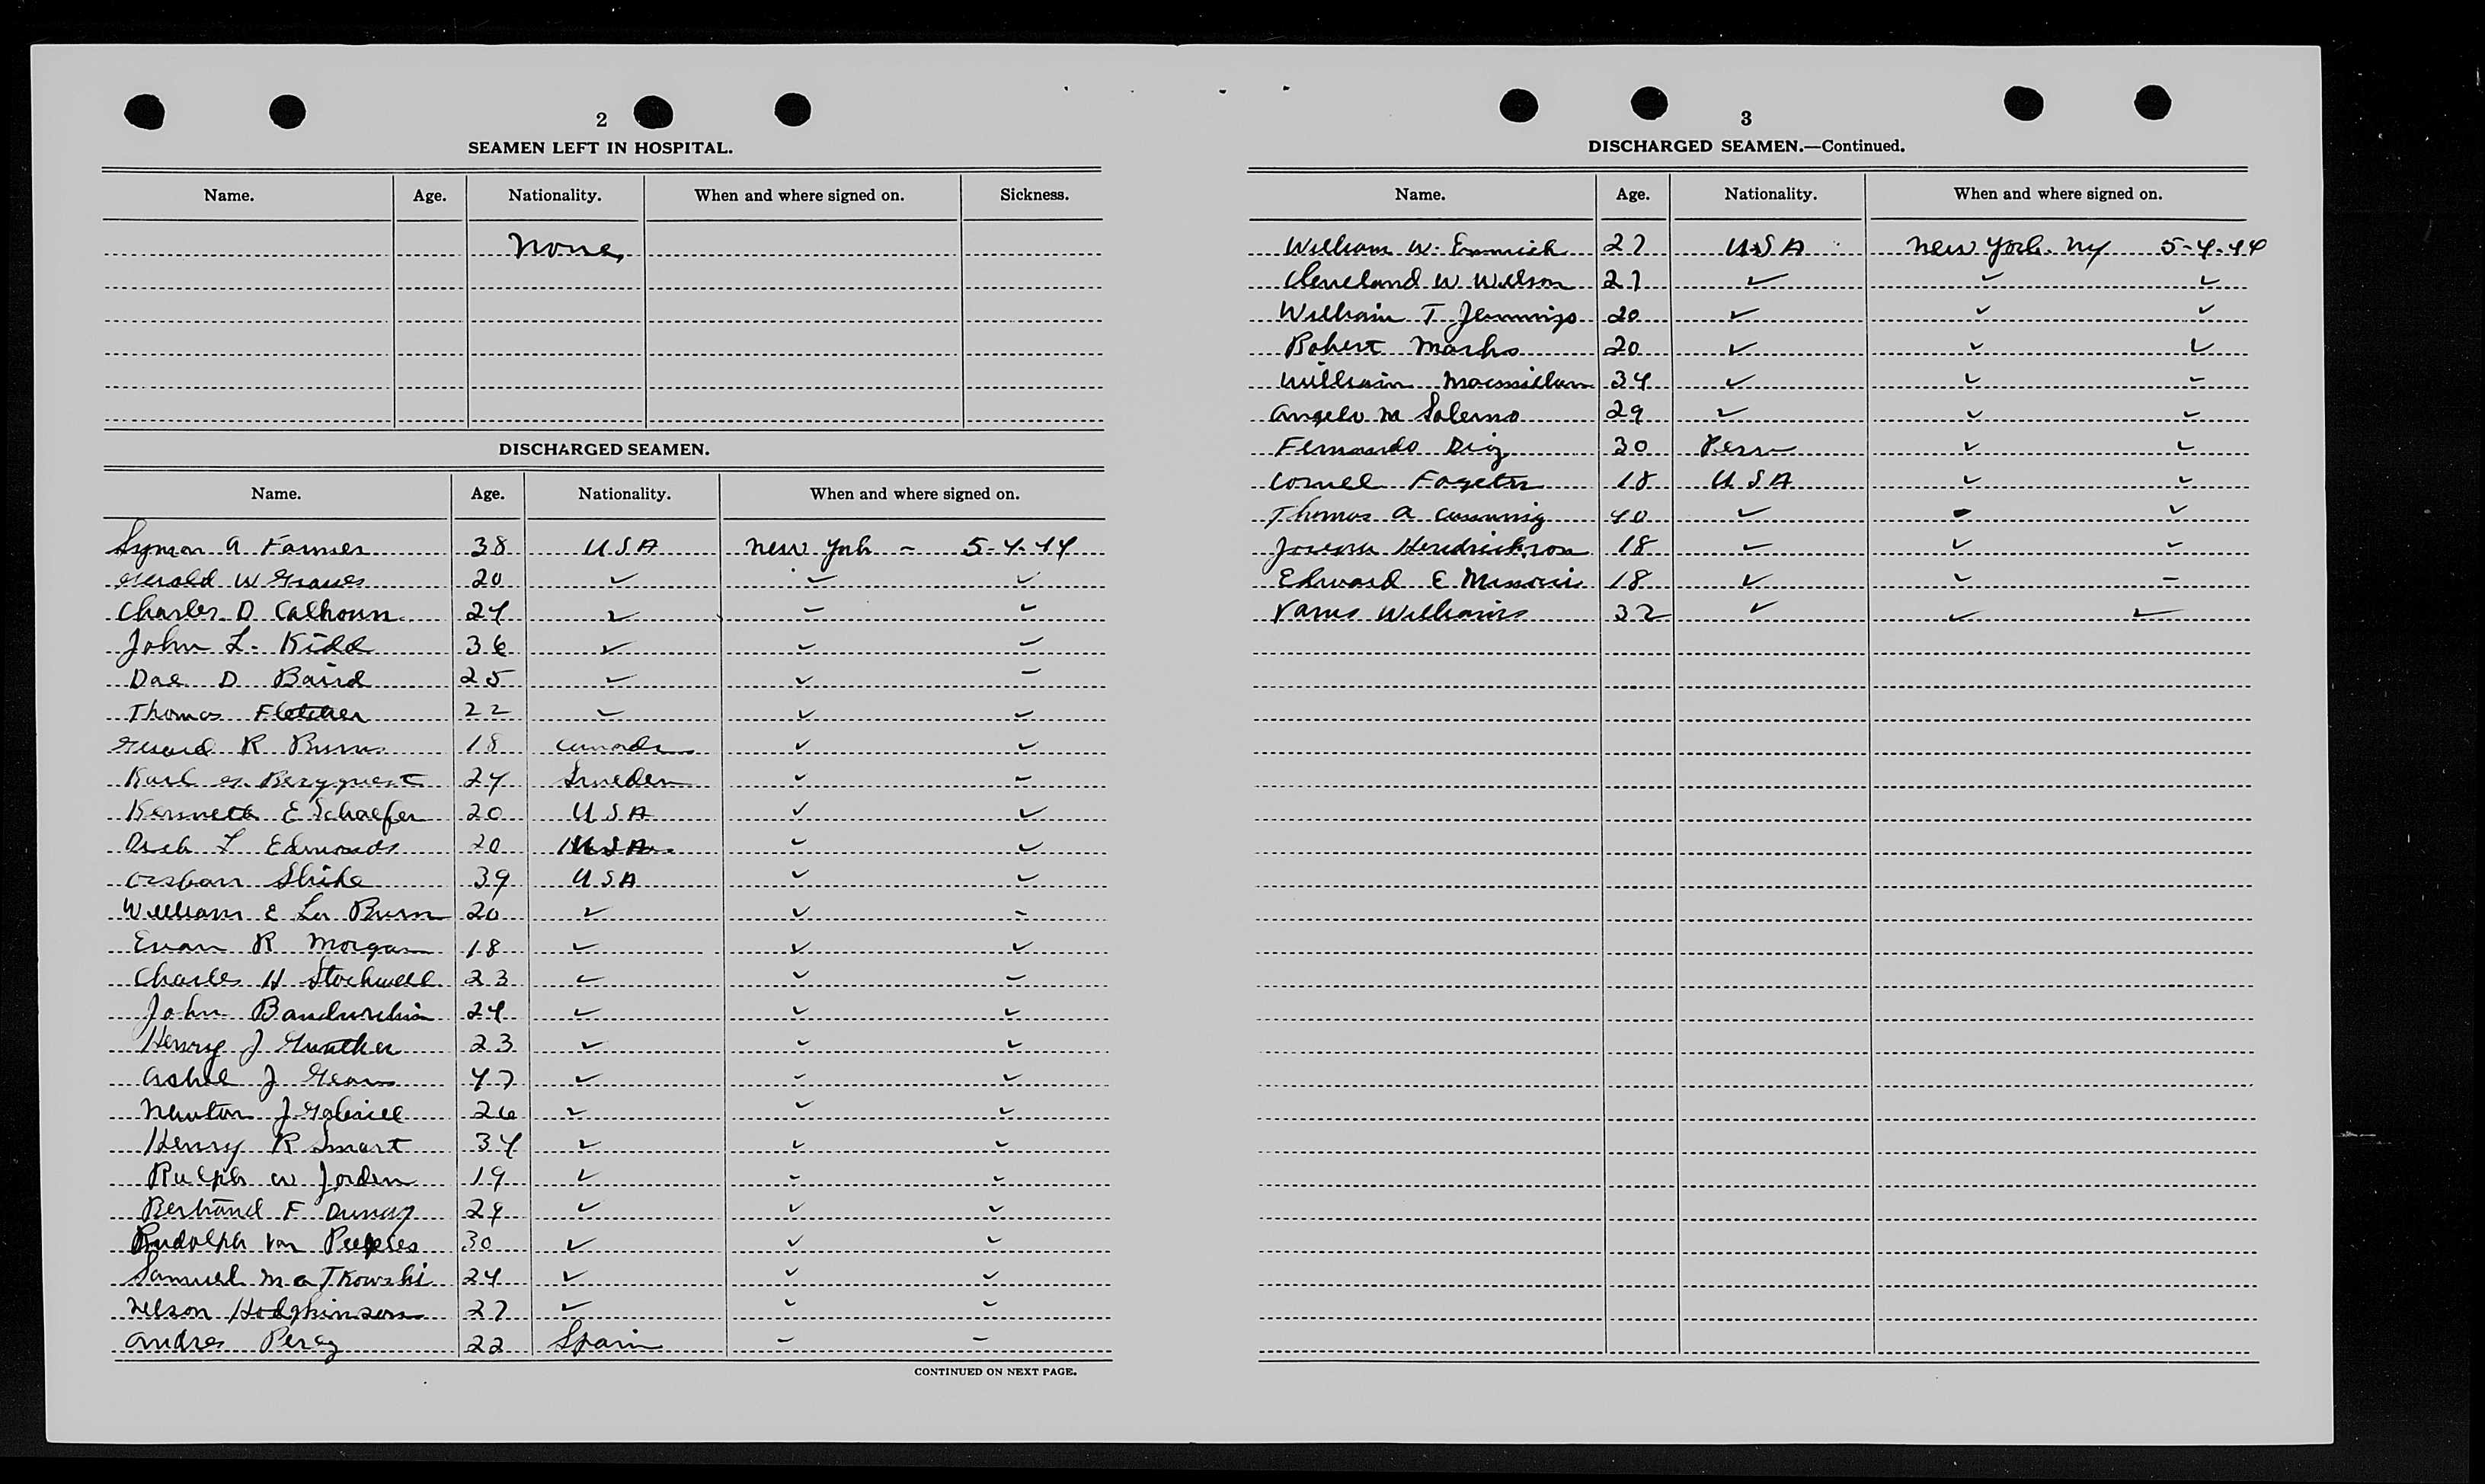 2
SEAMEN LEFT IN HOSPITAL.
Name. Age. Nationality. When and where signed on. Sickness.
None
DISCHARGED SEAMEN.
Name. Age. Nationality. When and where signed on.
Lyman A Farmer 38 USA New York - 5-4-44
Gerald W Graves 20 ✓ ✓ ✓
Charles D Calhoun 24 ✓ ✓ ✓
John L. Kidd 36 ✓ ✓ ✓
Dae D Baird 25 ✓ ✓ ✓
Thomas Fletcher 22 ✓ ✓ ✓
Gerard R Burns 18 Canada ✓ ✓
Karl G. Bergquest 24 Sweden ✓ ✓
Kenneth E Schaefer 20 USA ✓ ✓
L Edmonds 20 USA ✓ ✓
39 USA ✓ ✓
William E La Burn 20 ✓ ✓ ✓
Evan R Morgan 18 ✓ ✓ ✓
Charles H Stockwell 23 ✓ ✓ ✓
John 24 ✓ ✓ ✓
Henry J Gunther 23 ✓ ✓ ✓
J 47 ✓ ✓ ✓
Newton J Gabriel 26 ✓ ✓ ✓
Henry R Smart 34 ✓ ✓ ✓
Ralph W Jorden 19 ✓ ✓ ✓
Bertrand F 24 ✓ ✓ ✓
Rudolph Van Peeples 30 ✓ ✓ ✓
Samuel Matkowski 24 ✓ ✓ ✓
Nelson Hodgkinson 27 ✓ ✓ ✓
Andres Perez 22 Spain ✓ ✓
CONTINUED ON NEXT PAGE.
3
DISCHARGED SEAMEN.—Continued.
Name. Age. Nationality. When and where signed on.
William W. Emmick 27 USA New York. NY 5-4-44
Cleveland W Wilson 27 ✓ ✓ ✓
William T Jennings 20 ✓ ✓ ✓
Robert Marks 20 ✓ ✓ ✓
William Macmillan 34 ✓ ✓ ✓
Angelo M Salerno 29 ✓ ✓ ✓
Fernando Diaz 30 Peru ✓ ✓
Cornel 18 USA ✓ ✓
Thomas A 40 ✓ ✓ ✓
Joseph Hendrickson 18 ✓ ✓ ✓
Edward E 18 ✓ ✓ ✓
Williams 32 ✓ ✓ ✓